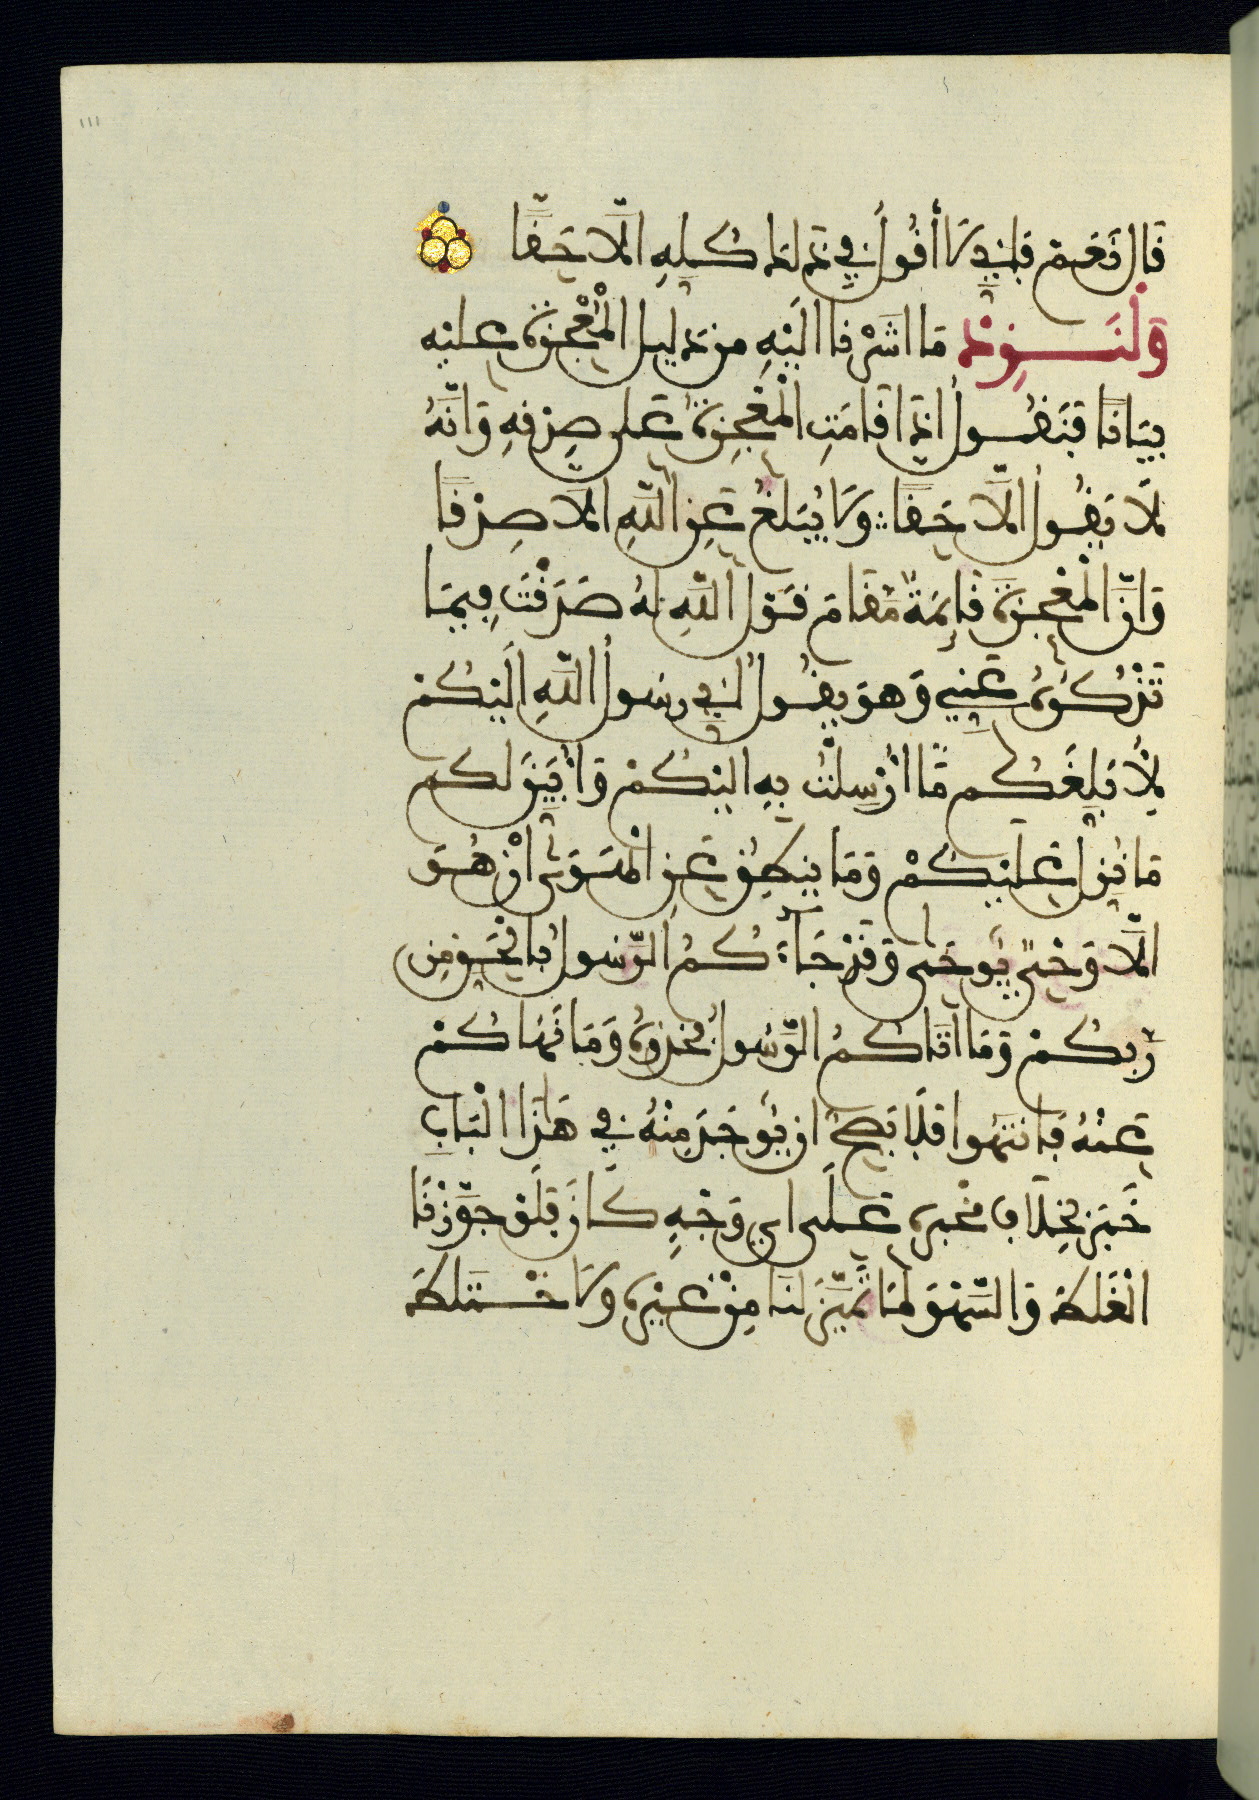 قَالَ نَعَمْ فَإِنِّي لَا أَقُولُ فِي ذَلِكَ كُلِّهِ إِلَّا حَقًّا
وَلْنَزِدْ مَا اشَرْنَا إِلَيْهِ مِنْ دَلِيلِ الْمُعْجِزَةِ عَلَيْهِ
بَيَانًا فَنَقُولُ إِذَا قَامَتِ الْمُعْجِزَةُ عَلَى صِدْقِهِ وَأَنَّهُ
لَا يَقُولُ إِلَّا حَقًّا وَلَا يُبَلِّغُ عَنِ اللَّهِ إِلَّا صِدْقًا
وَإِنَّ الْمُعْجِزَةَ قَائِمَةٌ مَقَامَ قَوْلِ اللَّهِ لَهُ صَدَقْتَ فِيمَا
تَذْكُرُهُ عَنِّي وَهُوَ يَقُولُ إِنِّي رَسُولُ اللَّهِ إِلَيْكُمْ
لِأُبَلِّغَكُمْ مَا أُرْسِلْتُ بِهِ إِلَيْكُمْ وَأُبَيِّنَ لَكُمْ
مَا نُزِّلَ عَلَيْكُمْ وَمَا يَنْطِقُ عَنِ الْهَوَى إِنْ هُوَ
إِلَّا وَحْيٌ يُوحَى وَقَدْ جَاءَكُمُ الرَّسُولُ بِالْحَقِّ مِنْ
رَبِّكُمْ وَمَا آتَاكُمُ الرَّسُولُ فَخُذُوهُ وَمَا نَهَاكُمْ
عَنْهُ فَانْتَهُوا فَلَا يَصِحُّ أَنْ يُوجَدَ مِنْهُ فِي هَذَا الْبَابِ
خَبَرٌ بِخِلَافِ مُخْبَرِهِ عَلَى أَيِّ وَجْهٍ كَانَ فَلَوْ جَوَّزْنَا
الْغَلَطَ وَالسَّهْوَ لَمَا تَمَيَّزَ لَنَا مِنْ غَيْرِهِ وَلَاخْتَلَطَ